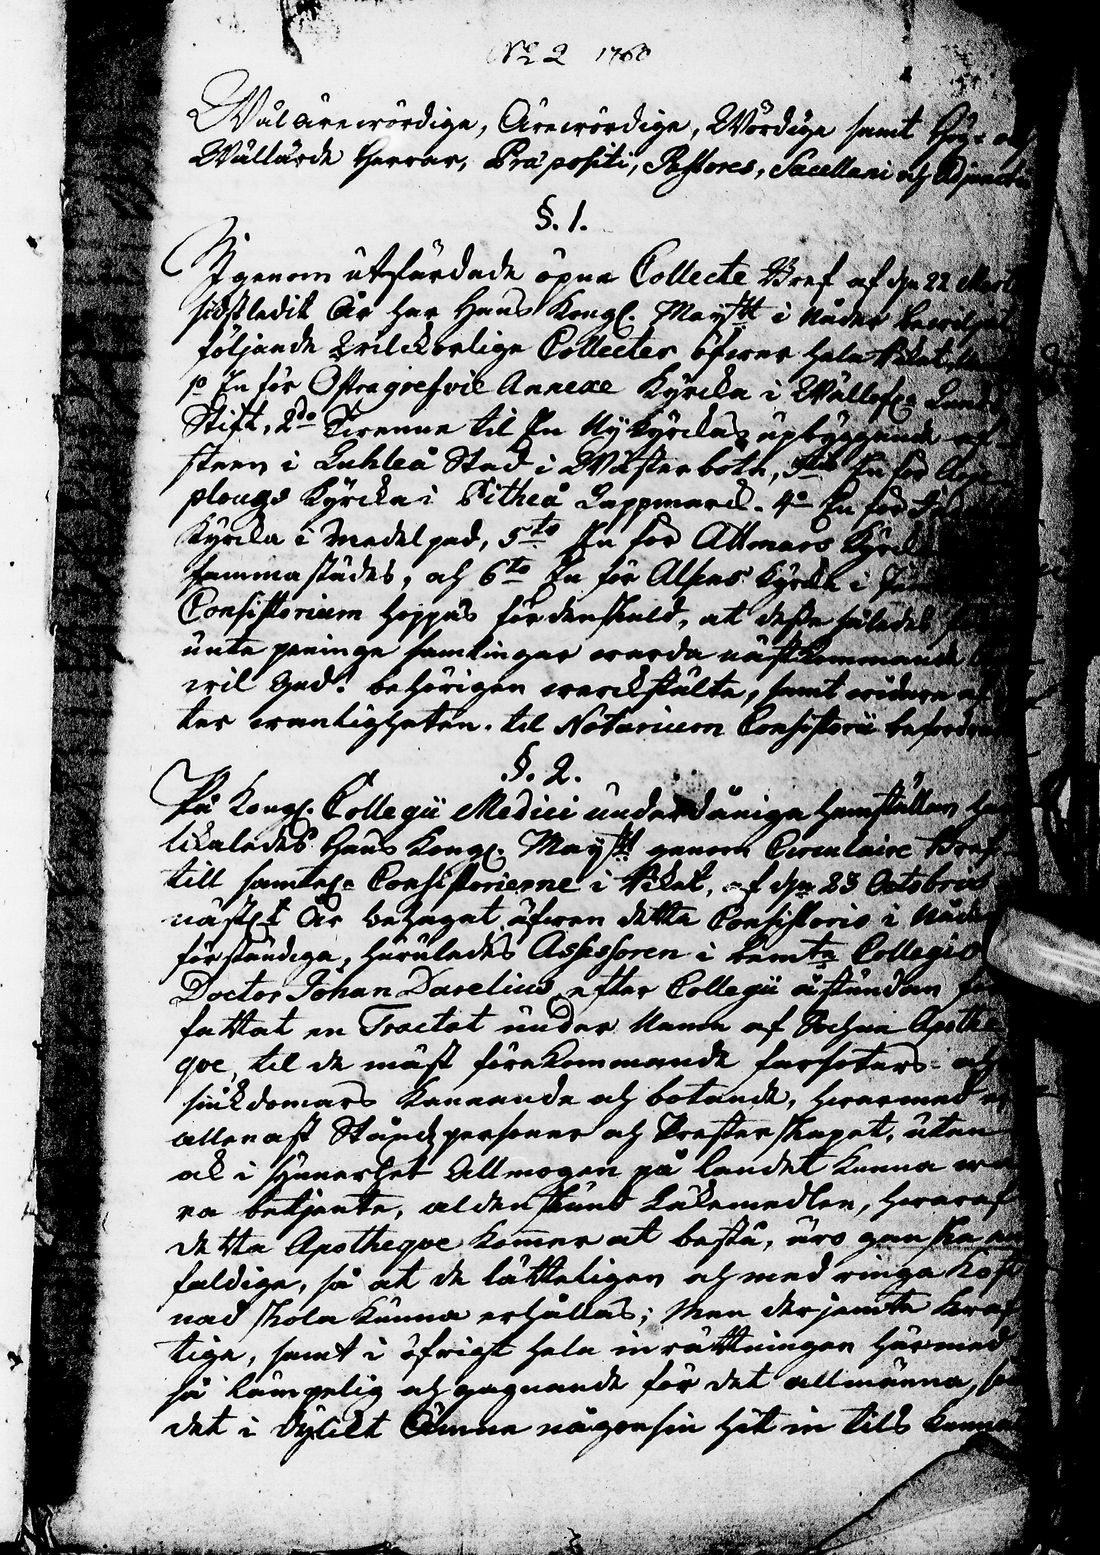 No 2 1760
Wälärewördige, Ärewördige, Wördige samt Hög- och
Wällärde Herrar, Præpositi, Pastores, Sacellani och Adjuncti
§. 1.
Igenom utfärdade öpna Collecte Bref af den 22 Mart
sidstledit År har Hans Kongl. Mayst:t i Nåder bewiljat
följande Collecter öfwer hela Riket,
1o En för Östragrefvie Annexe Kyrcka i Lunds
Stift, 2do Twenne til En Ny Kyrckas upbyggande af
steen i Luhleå Stad i Wästerbotn, En för Arje-
plougs Kyrcka i Pitheå Lappmarck. 4o En för
Kyrcka i Medelpad, 5to En för Attmars Kyrcka
sammastädes, och 6to En för Alsens Kyrcka i
Consistorium hoppas fördenskuld, at desse således
unte peninge samlingar warda nästkommande
wil Gud! behörigen werckstälte, samt widare ef-
ter wanligheten til Notarium Consistorii befordrade
§. 2.
På Kongl. Collegii Medici underdåniga hemställan, har
likaledes Hans Kongl. Mayst:t genom Circulaire Bref
till samtel. Consistorierne i Riket, af den 23 Octobris
näst År behagat äfwen detta Consistorio i Nåder
förständiga, huruledes Assessoren i bemte Collegio
Doctor Johan Darelius, efter Collegii åstundan för-
fattat en Tractat under Namn af Sochne Apothe-
qve, til de mäst förekommande farsoters- och
siukdomars kännande och botande, hwarmed ej
allenast Ståndspersoner och Presterskapet, utan
ock i synnerhet Allmogen på landet kunna wa-
ra betjente, aldenstund Läkemedlen, hwaraf
detta Apotheqve kommer at bestå, äro ganska en-
faldige, så at de lätteligen och med ringa kost-
nad skola kunna erhållas; Men derjemte kraf-
tige, samt i öfrigt hela inrättningen härmed
så lämpelig och gagnande för det allmänna, som
det i dylikt Ämne någonsin hit in tils kunnat